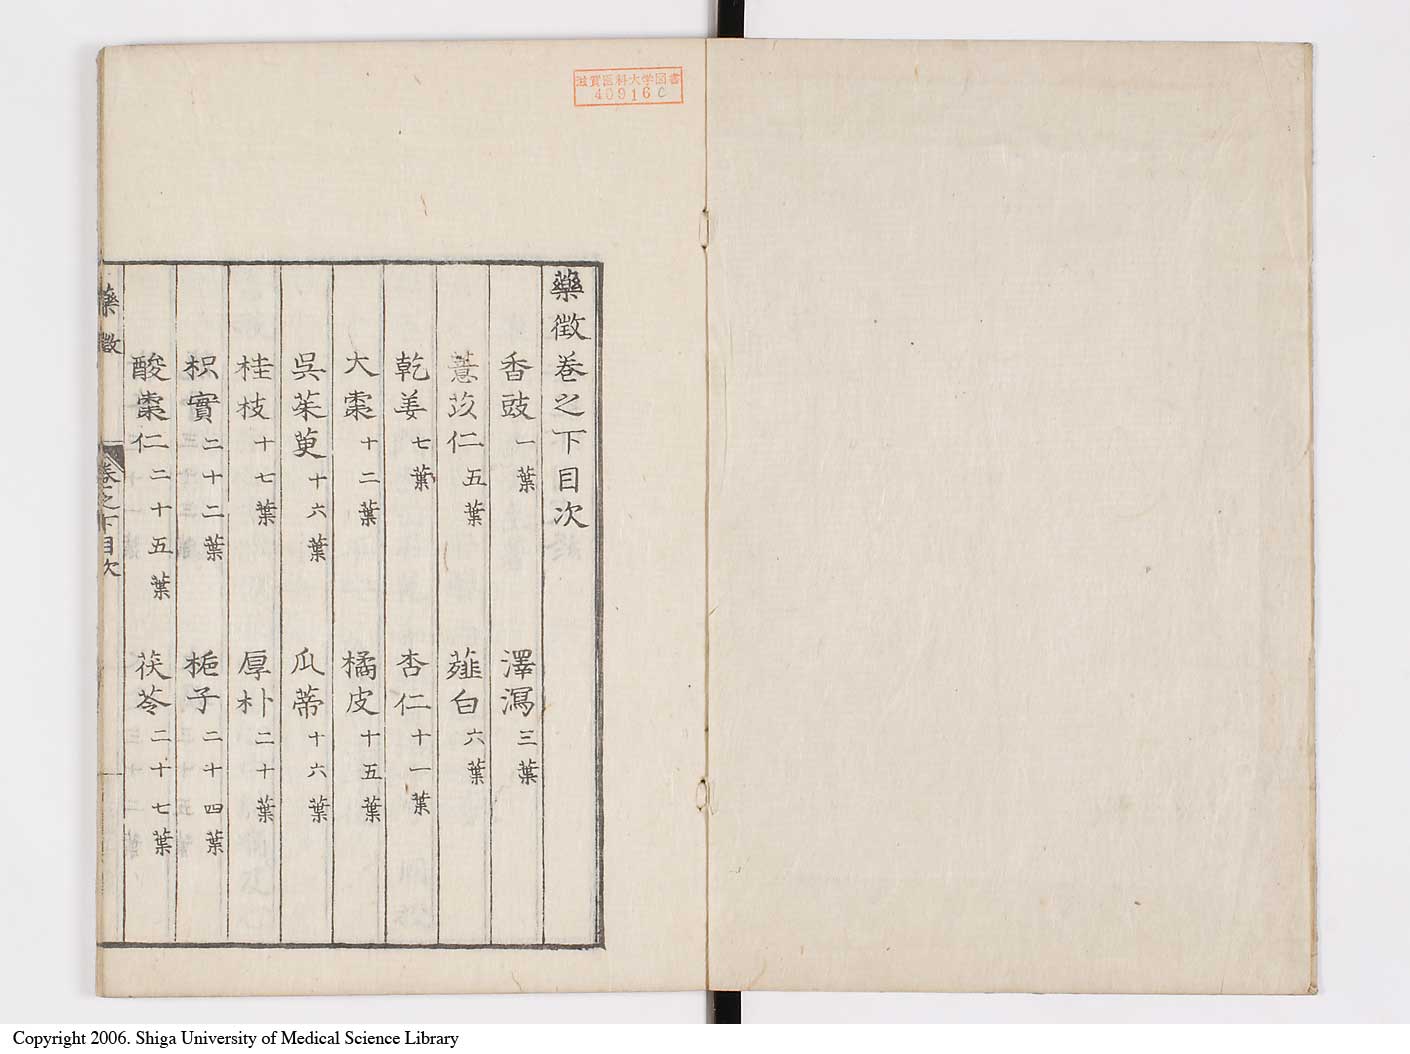 滋賀医科大学図書
40916C
藥徴巻之下目次
香豉一葉 澤瀉三葉
薏苡仁五葉 薤白六葉
乾姜七葉 杏仁十一葉
大棗十二葉 橘皮十五葉
呉茱萸十六葉 瓜蒂十六葉
桂枝十七葉 厚朴二十葉
枳實二十二葉 梔子二十四葉
酸棗仁二十五葉 茯苓二十七葉
藥徴 巻之下目次
Copyright 2006. Shiga University of Medical Science Library